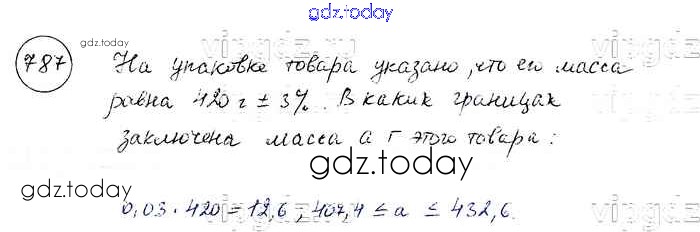 gdz.today
787 gdz.today vipgdz
На упаковке товара указано, что его масса
равна 420 г ± 3%. В каких границах
заключена масса а г этого товара:
gdz.today gdz.today
0,03 · 420 = 12,6 ; 407,4 ≤ a ≤ 432,6.
vipgdz vipgdz